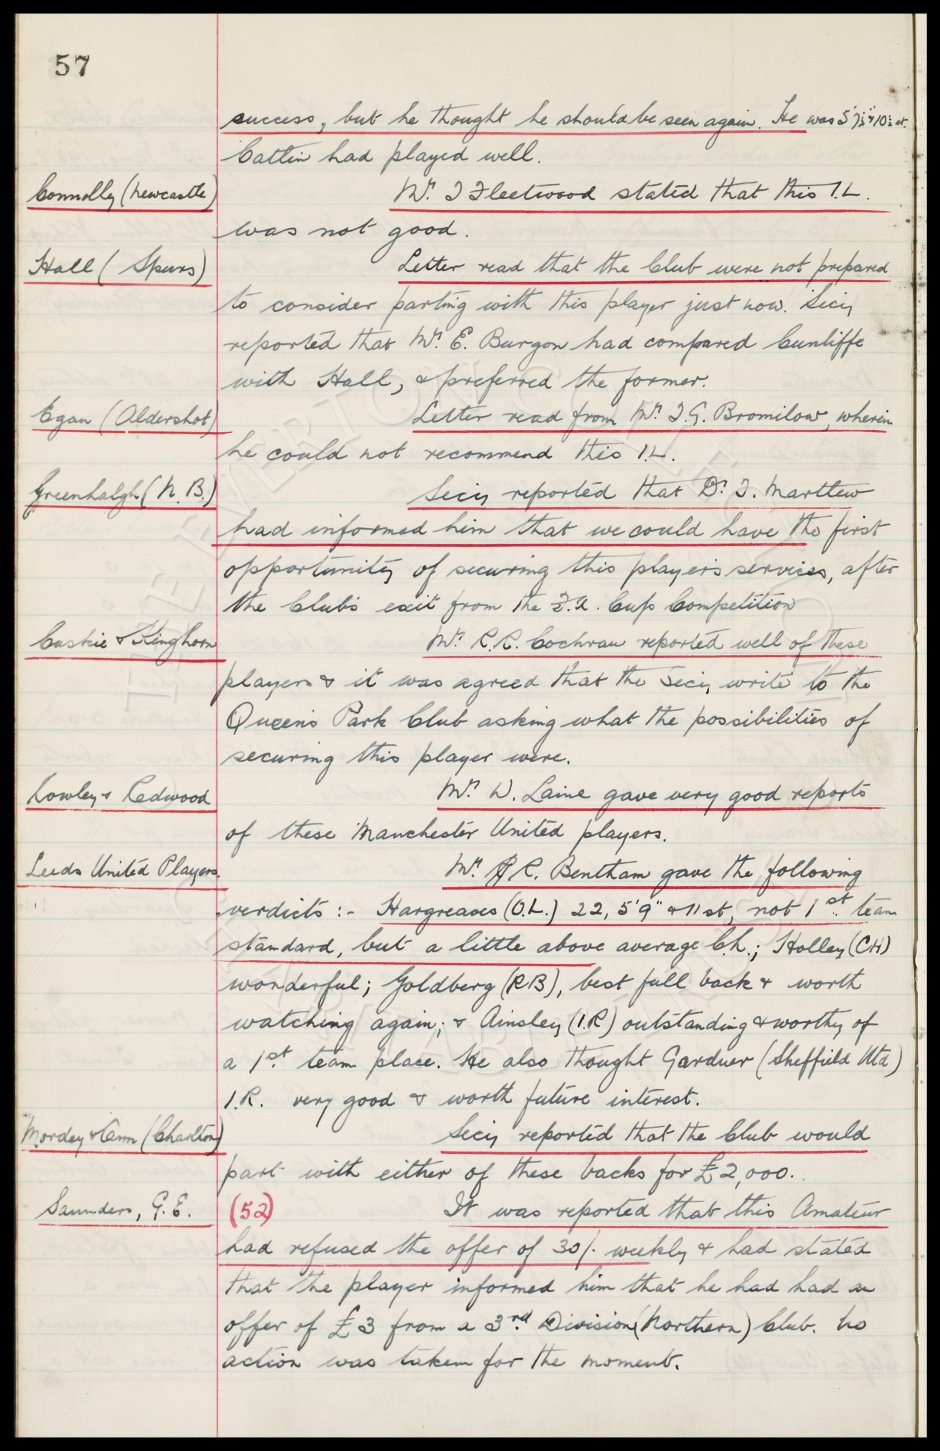 57
success, but he thought he should be seen again. He was 5'7½" & 10½ st.
Catlin had played well.
Connolly (Newcastle) Mr. J Fleetwood stated that this I.L.
was not good.
Hall (Spurs) Letter read that the Club were not prepared
to consider parting with this player just now. Secy
reported that Mr. E. Burgon had compared Cunliffe
with Hall, & preferred the former.
Egan (Aldershot) Letter read from Mr. T.G. Bromilow, wherein
he could not recommend this I.L.
Greenhalgh (N.B.) Secy reported that Dr. J. Marttew
had informed him that we could have the first
opportunity of securing this player's services, after
the Club's exit from the F.A. Cup Competition
Caskie & Kinghorn Mr. R.R. Cochran reported well of these
players & it was agreed that the Secy write to the
Queen's Park Club asking what the possibilities of
securing this player were.
Cowley & Redwood Mr. W. Laine gave very good reports
of these Manchester United players.
Leeds United Players. Mr. R. Bentham gave the following
verdicts :- Hargreaves (O.L.) 22, 5'9" & 11 st, not 1st. team
standard, but a little above average Ch.; Holley (CH)
wonderful; Goldberg (R.B), best full back & worth
watching again; & Ainsley (I.R) outstanding & worthy of
a 1st. team place. He also thought Gardner (Sheffield Utd)
I.R. very good & worth future interest.
Mordey & Cann (Charlton) Secy reported that the Club would
part with either of these backs for £2,000.
Saunders, G.E. (52) It was reported that this Amateur
had refused the offer of 30/- weekly & had stated
that the player informed him that he had had an
offer of £3 from a 3rd Division (Northern) Club. No
action was taken for the moment.